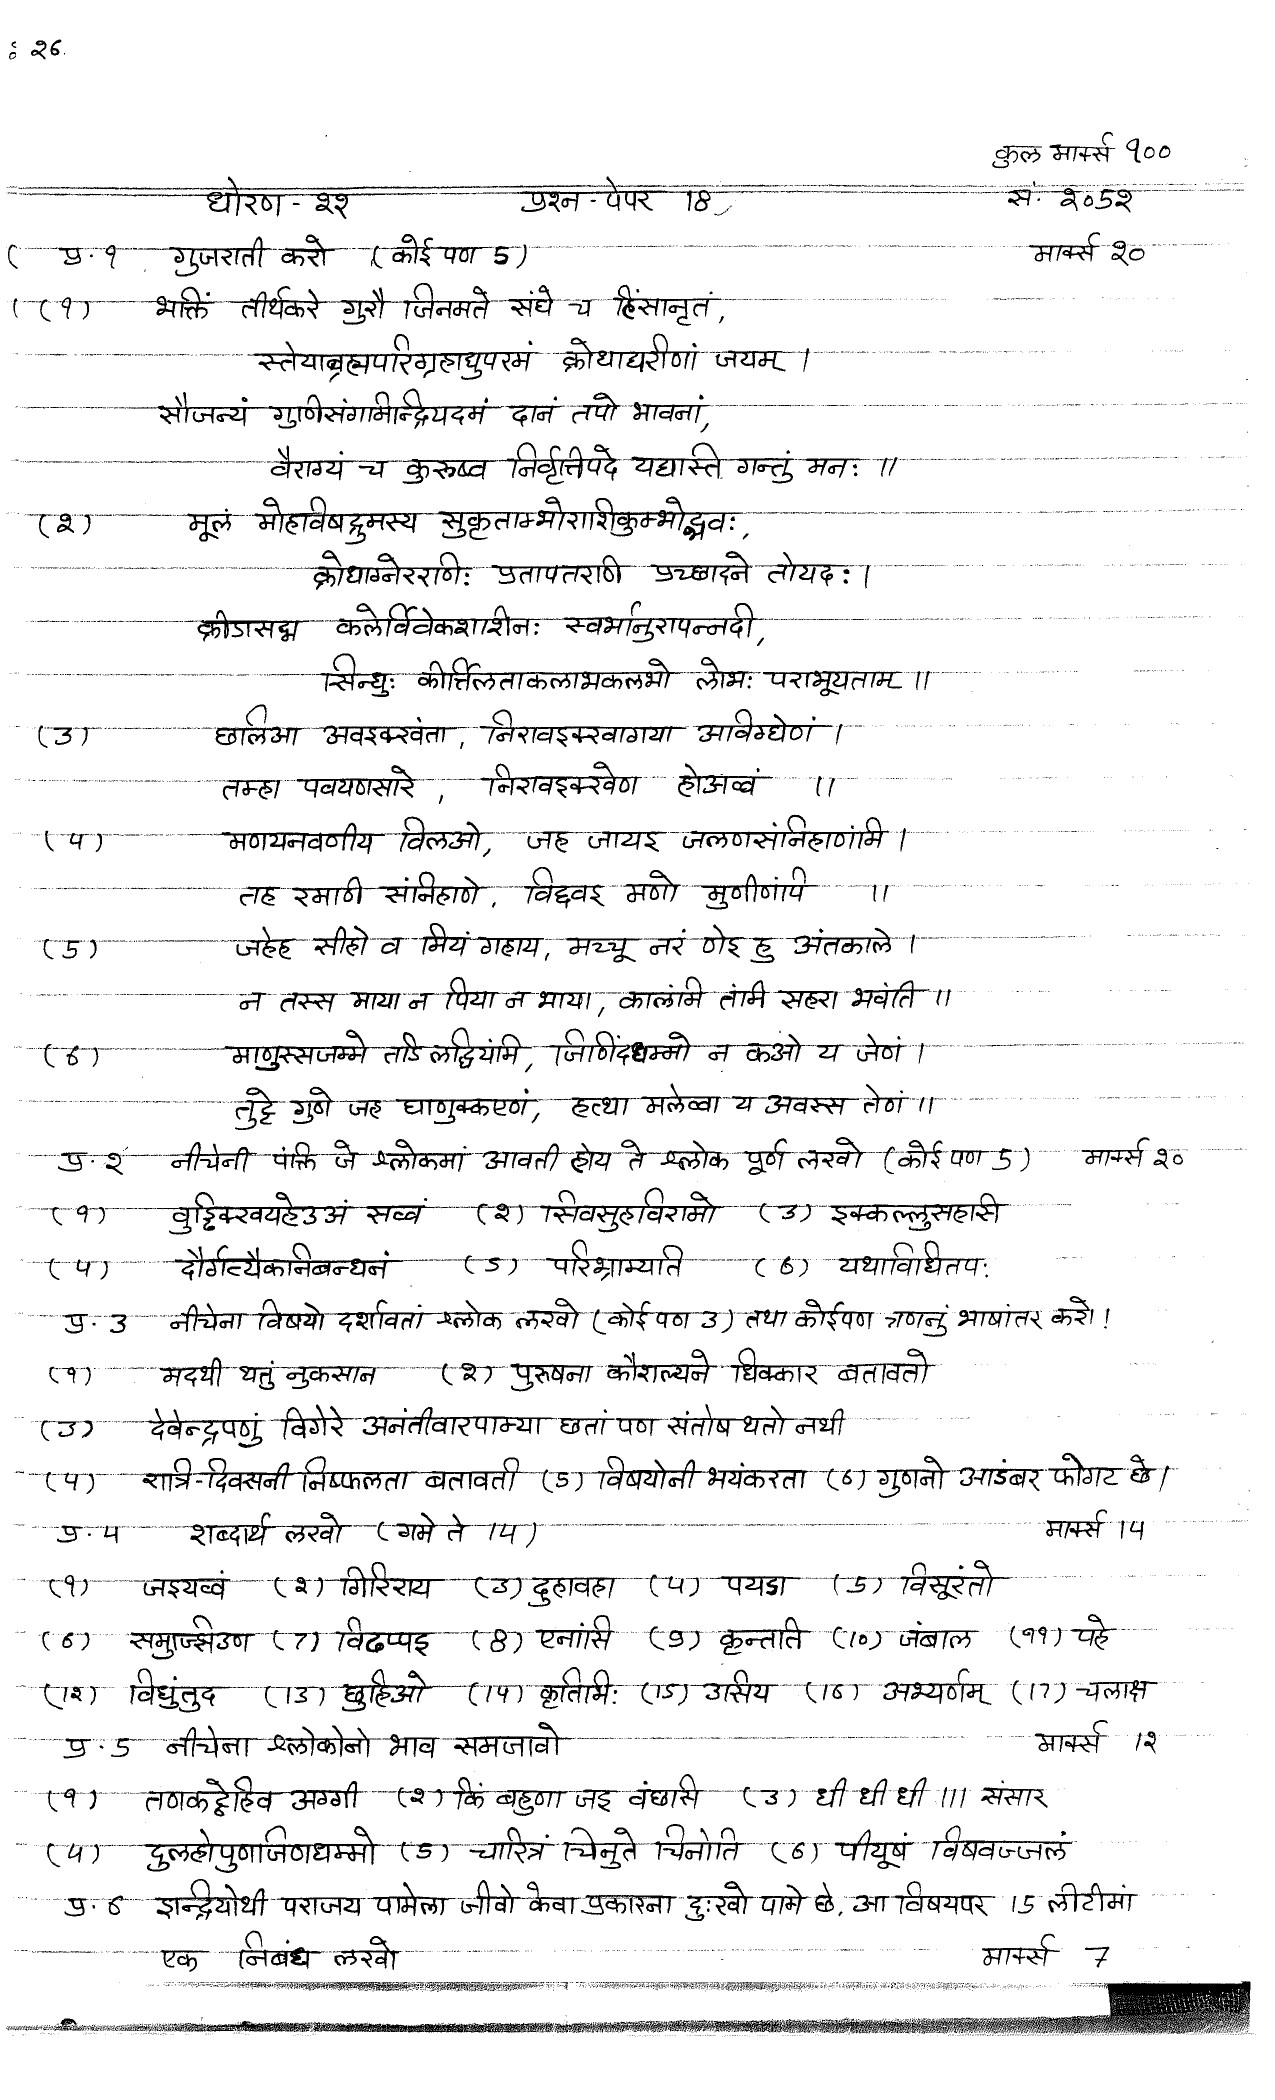 : २६.
कुल मार्क्स १००
धोरण - २२ प्रश्न - पेपर 18 सं. २०5२
प्र. १ गुजराती करो (कोई पण 5) मार्क्स २०
(१) भक्तिं तीर्थकरे गुरौ जिनमते संघे च हिंसानृतं,
स्तेयाब्रह्मपरिग्रहाद्युपरमं क्रोधाद्यरीणां जयम् ।
सौजन्यं गुणिसंगमिन्द्रियदमं दानं तपो भावनां,
वैराग्यं च कुरुष्व निर्वृत्तिपदे यद्यास्ति गन्तुं मनः ॥
(२) मूलं मोहविषद्रुमस्य सुकृताम्भोराशिकुम्भोद्भवः,
क्रोधाग्नेररणिः प्रतापतरणि प्रच्छादने तोयदः ।
क्रीडासद्म कलेर्विवेकशशिनः स्वर्भानुरापन्नदी,
सिन्धुः कीर्त्तिलताकलाभकलभो लोभः पराभूयताम् ॥
(3) छलिआ अवइक्खंता, निरावइक्खागया अविग्घेणं ।
तम्हा पवयणसारे, निरावइक्खेण होअव्वं ॥
(४) मणयनवणीय विलओ, जह जायइ जलणसंनिहाणंमि ।
तह रमणि संनिहाणे, विद्दवइ मणो मुणीणंपि ॥
(5) जहेह सीहो व मियं गहाय, मच्चू नरं णेइ हु अंतकाले ।
न तस्स माया न पिया न भाया, कालंमि तंमि सहरा भवंति ॥
(6) माणुस्सजम्मे तडि लद्धियंमि, जिणिंदधम्मो न कओ य जेणं ।
तुट्टे गुणे जह घाणुक्कएणं, हत्था मलेव्वा य अवस्स तेणं ॥
प्र. २ नीचेनी पंक्ति जे श्लोकमां आवती होय ते श्लोक पूर्ण लखो (कोई पण 5) मार्क्स २०
(१) वुड्ढिक्खयहेउअं सव्वं (२) सिवसुहविरामो (3) इक्कल्लुसहासी
(४) दौर्गत्यैकनिबन्धनं (5) परिभ्राम्यति (6) यथाविधितपः
प्र. 3 नीचेना विषयो दर्शावतां श्लोक लखो (कोई पण 3) तथा कोईपण त्रणनुं भाषांतर करो !
(१) मदथी थतुं नुकसान (२) पुरुषना कौशल्यने धिक्कार बतावतो
(3) देवेन्द्रपणुं विगेरे अनंतीवारपाम्या छतां पण संतोष थतो नथी
(४) रात्रि-दिवसनी निष्फलता बतावती (5) विषयोनी भयंकरता (6) गुणनो आडंबर फोगट छे ।
प्र. ४ शब्दार्थ लखो (गमे ते 1४) मार्क्स 1४
(१) जइयव्वं (२) गिरिराय (3) दुहावहा (४) पयडा (5) विसूरंतो
(6) समुज्झिउण (7) विढप्पइ (8) एनांसि (9) कृन्तति (१०) जंबाल (११) पहे
(1२) विधुंतुद (13) छुहिओ (1४) कृतिभिः (15) उसिय (16) अभ्यर्णम् (17) चलाक्ष
प्र. 5 नीचेना श्लोकोनो भाव समजावो मार्क्स 1२
(१) तणकट्ठेहिव अग्गी (२) किं बहुणा जइ वंछसि (3) धी धी धी ।।। संसार
(४) दुलहोपुणजिणधम्मो (5) चारित्रं चिनुते चिनोति (6) पीयूषं विषवज्जलं
प्र. 6 इन्द्रियोथी पराजय पामेला जीवो केवा प्रकारना दुःखो पामे छे, आ विषयपर 15 लीटीमां
एक निबंध लखो मार्क्स 7